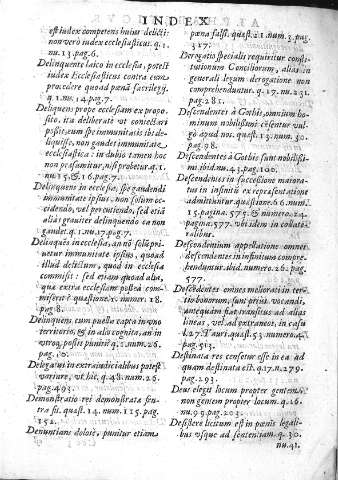 INDEX
est iudex competens huius delicti:
non verò iudex ecclesiasticus. q. 1.
nu. 13. pag. 6.
Delinquente laico in ecclesia, potest
iudex Ecclesiasticus contra eum
procedere quoad pœnã sacrilegij.
q. 1. nu. 14. pag. 7.
Delinquens prope ecclesiam ex propo
sito, ita deliberatè ut
posset, eum spe immunitatis ibi de-
liquisse, non gaudet immunitate
ecclesiastica: in dubio tamen hoc
non præsumitur, nisi probetur. q. 1.
nu. 15. & 16. pag. 7.
Delinquens in ecclesia, spe gaudendi
immunitate ipsius, non solùm oc-
cidendo, vel percutiendo, sed etiã
aliàs grauiter delinquendo ea non
gaudet. q. 1. nu. 17. pag. 7.
Delinquẽs in ecclesia, an nõ solũ pri-
uetur immunitate ipsius, quoad
illud delictum, quod in ecclesia
commisit: sed etiam quoad alia,
quæ extra ecclesiam posteà com-
miserit? quæstione. 1. numer. 18.
pag. 8.
Delinquens cum pœna capta in vno
territorio, & in alio cognita, an in
vtroq. possit puniri? q. 1. num. 26.
pag. 10.
Delegati in extraiudicialibus potest
variare, vt hic. q. 48. num. 26.
pag. 493.
Demonstratio rei demonstratæ sen-
tra fii. quæst. 14. num. 115. pag.
152.
Denuntians dolosè, punitur etiam
pœna falsi. quæst. 21. num. 3. pag.
317.
Derogatio specialis requiritur consti-
tutionum Conciliorum, alias in
generali legum derogatione non
comprehenduntur. q. 17. nu. 6.
pag. 281.
Descendentes à Gothis, omnium ho-
minum nobilissimi censentur vul-
gò apud nos. quæst. 13. num. 30.
pag. 98.
Descendentes à Gothis sunt nobilissi-
mi. ibid. nu. 43. pag. 100.
Descendentes in successione maiora-
tus in infinitũ ex repræsentatione
admittuntur quæstione. 66. num.
15. pagina. 575. & numero. 24.
pagina. 577. vbi idem in collate-
ralibus.
Descendentium appellatione omnes
descendentes in infinitum compre-
henduntur. ibid. numero. 26. pag.
577.
Descẽdentes omnes meliorati in ter-
tio bonorum, sunt prius vocandi,
antequàm fiat transitus ad alias
lineas, vel ad extraneos, in casu
l. 27. Tauri. quæst. 53. numero. 4.
pag. 513.
Destinata res censetur esse in ea ad
quam destinata est. q. 17. n. 279.
pag. 293.
Deus elegit locum propter gentem,
non gentem propter locum. q. 26.
nu. 99. pag. 203.
Desistere licitum est in pœnis legali-
bus vsque ad sententiam. q. 30.
nu. 41.